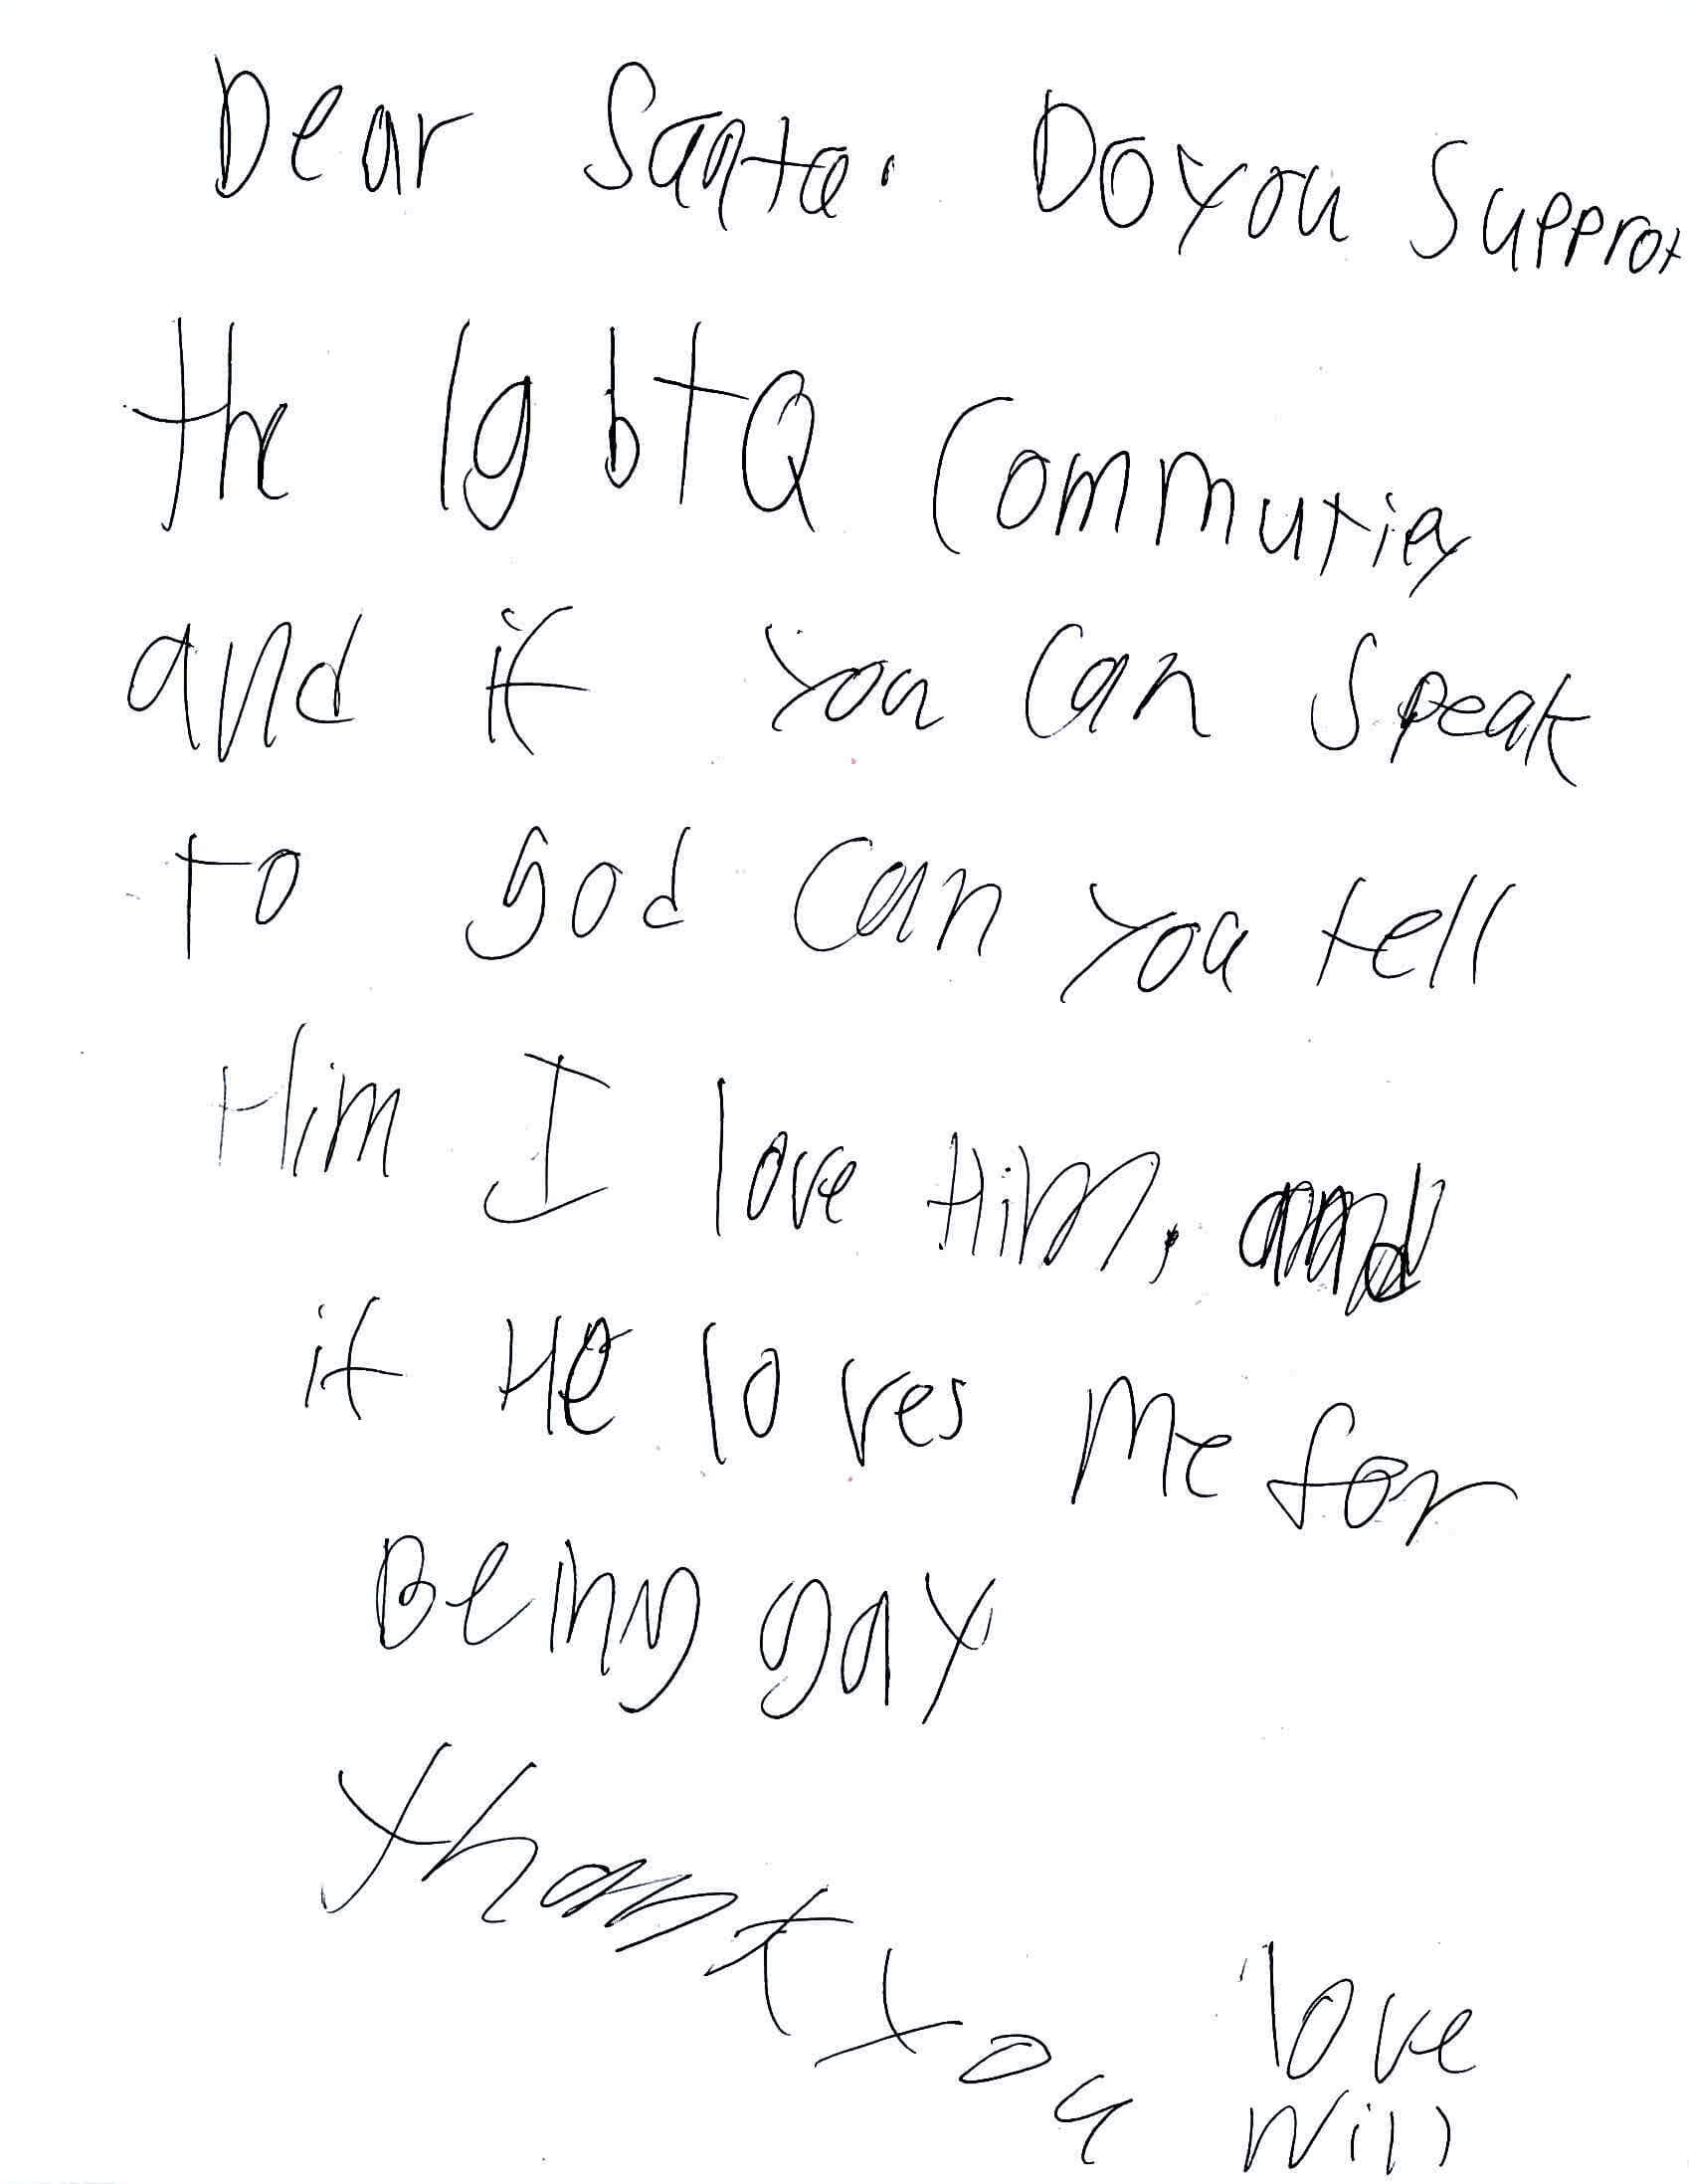 Dear Santa. Do you Supprot
the lgbtQ Commutiey
and if you can speak
to God can you tell
Him I love Him, and
if He loves me for
Being gay
thank you
love
Will